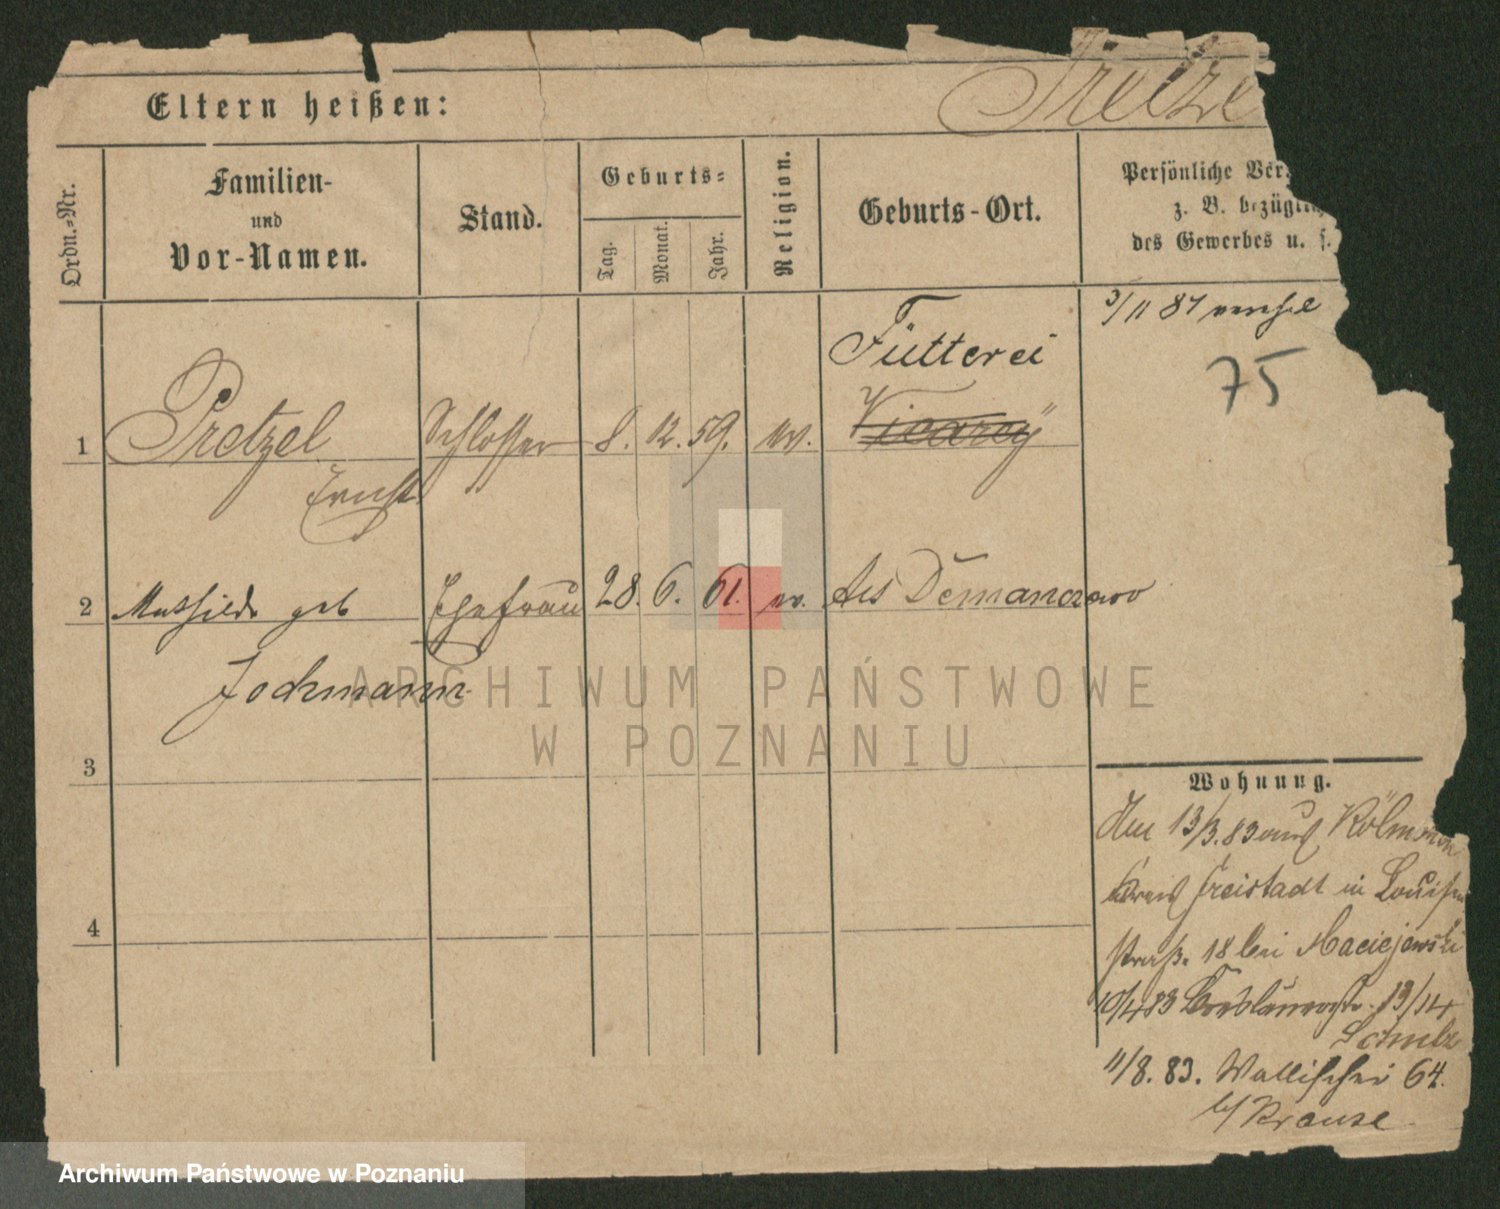 Eltern heißen:
Familien-
und
Vor-Namen.
Stand.
Geburts-
Tag.
Monat.
Jahr.
Religion.
Geburts-Ort.
Persönliche
z. B.
des Gewerbes u.
Ordn.-Nr.
3/11 87
75
Fütterei
1 Pretzel Schlosser 8. 12. 59. ev.
Ernst
2 Mathilde geb Ehefrau 28. 6. 61. ev.
Jochmann
3
4
Wohnung.
den 13/3.83 aus
Kreis Freistadt in
straß. 18 bei Maciejewski
10/4 83 13/14
Schulz
11/8. 83. Wallischei 64.
b/ Krause
ARCHIWUM PAŃSTWOWE
W POZNANIU
Archiwum Państwowe w Poznaniu